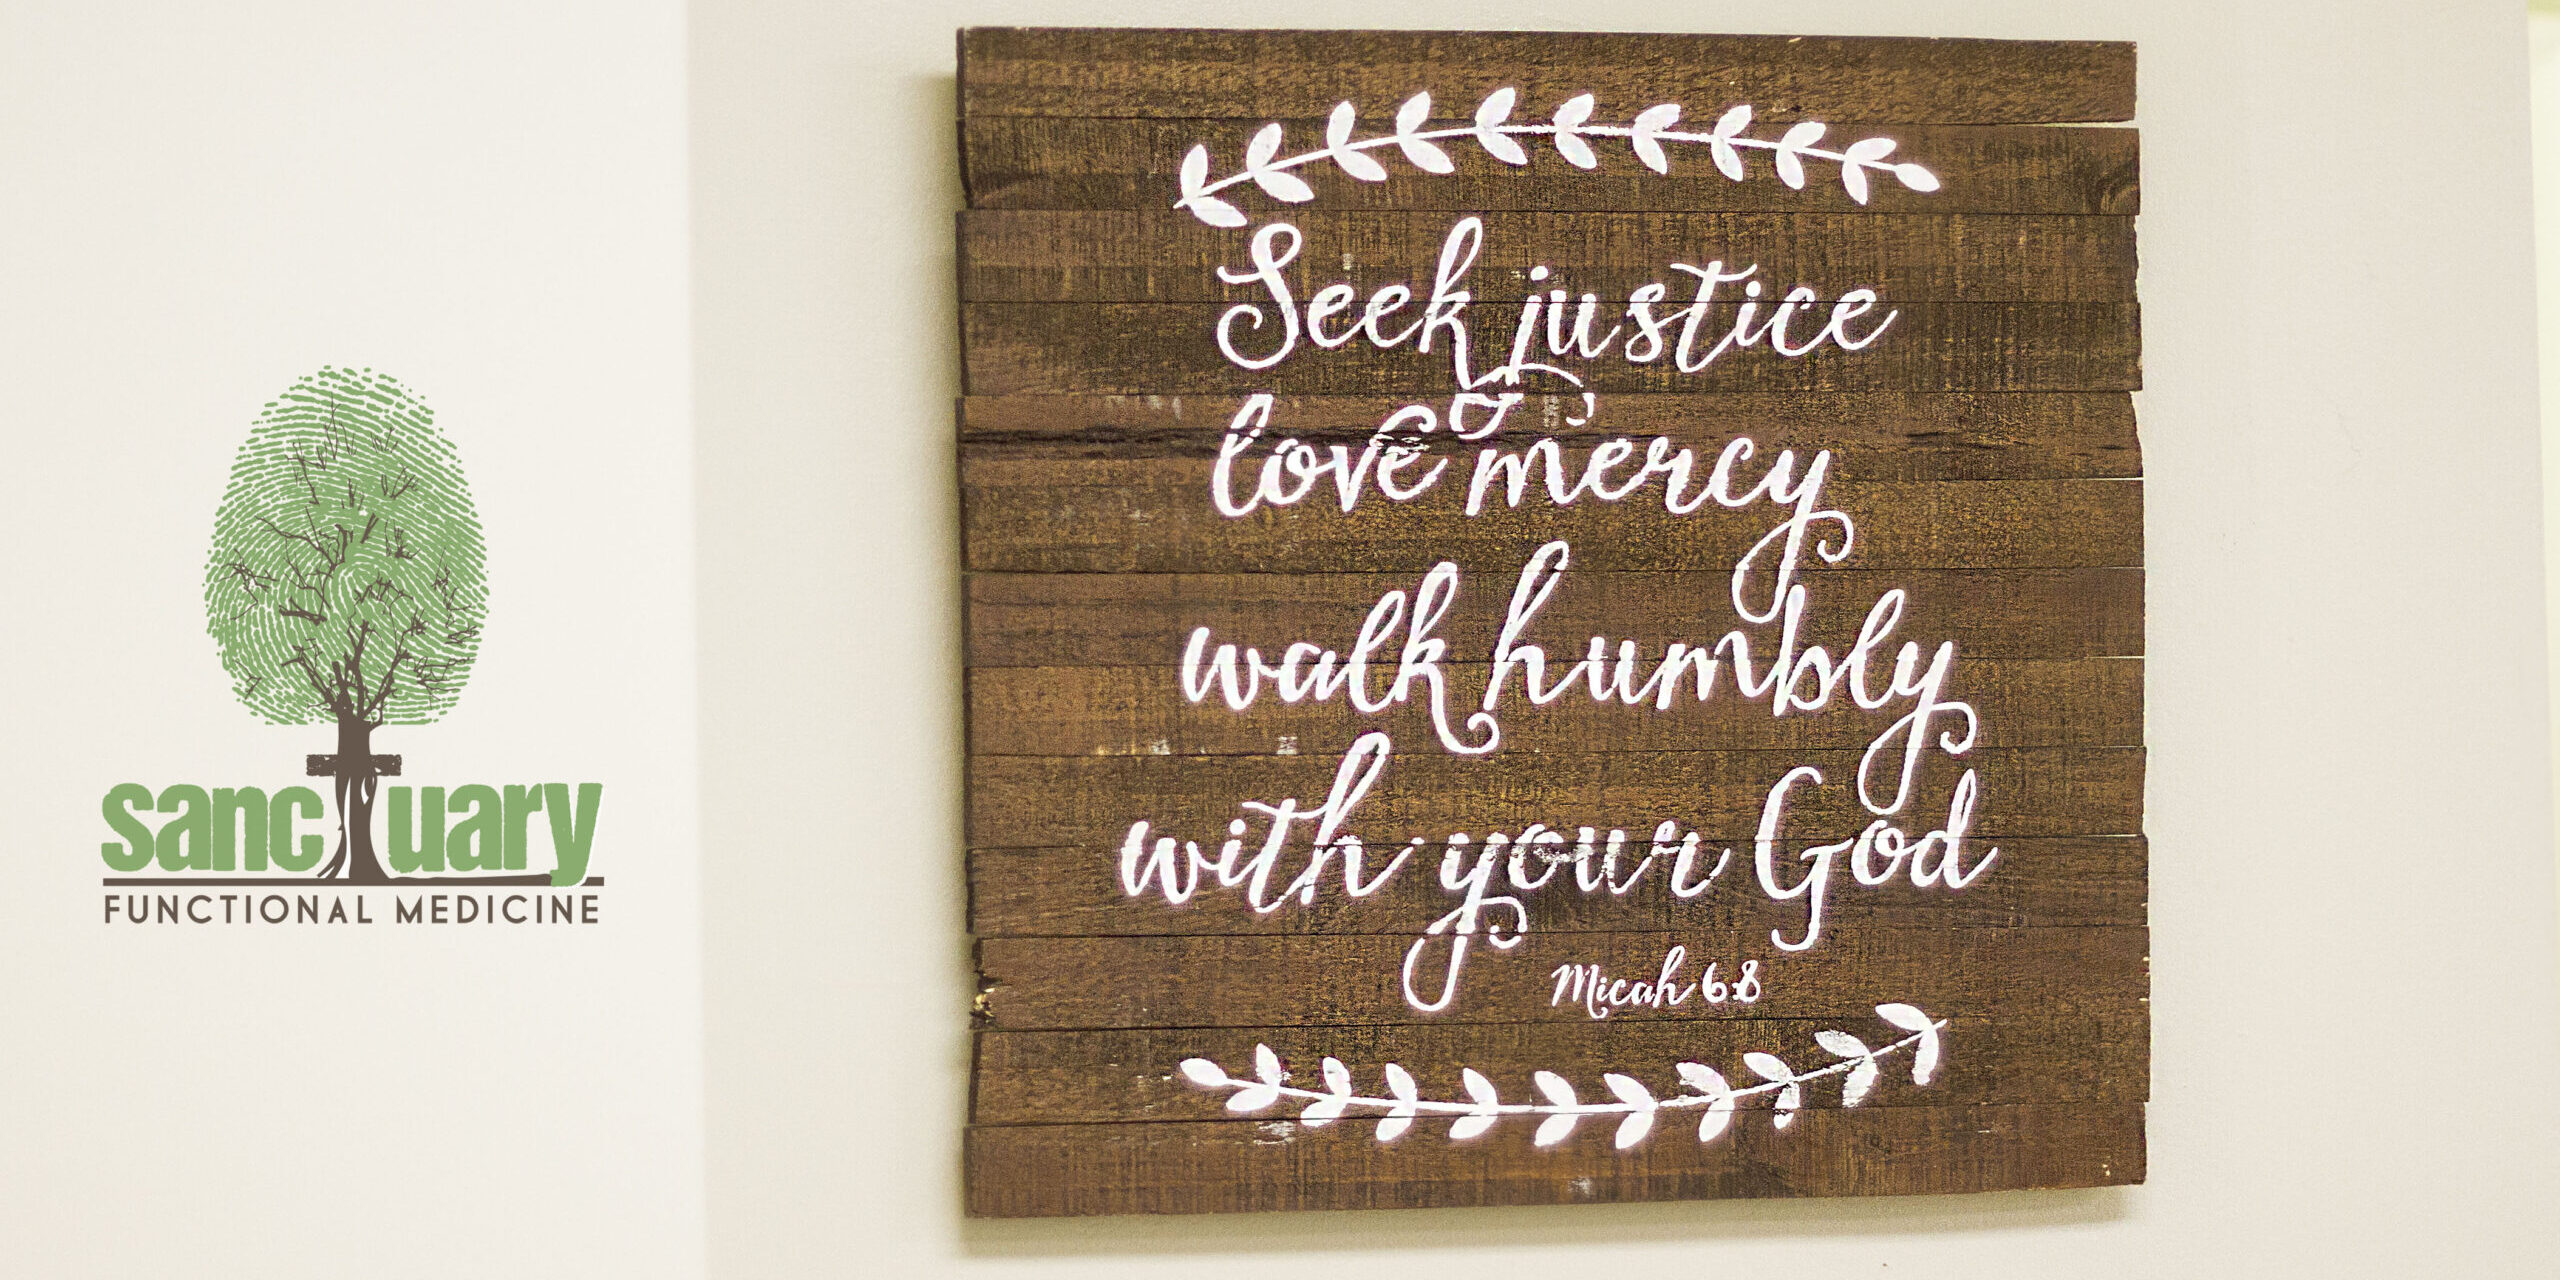 sanctuary
FUNCTIONAL MEDICINE
Seek justice
love mercy
walk humbly
with your God
Micah 6:8